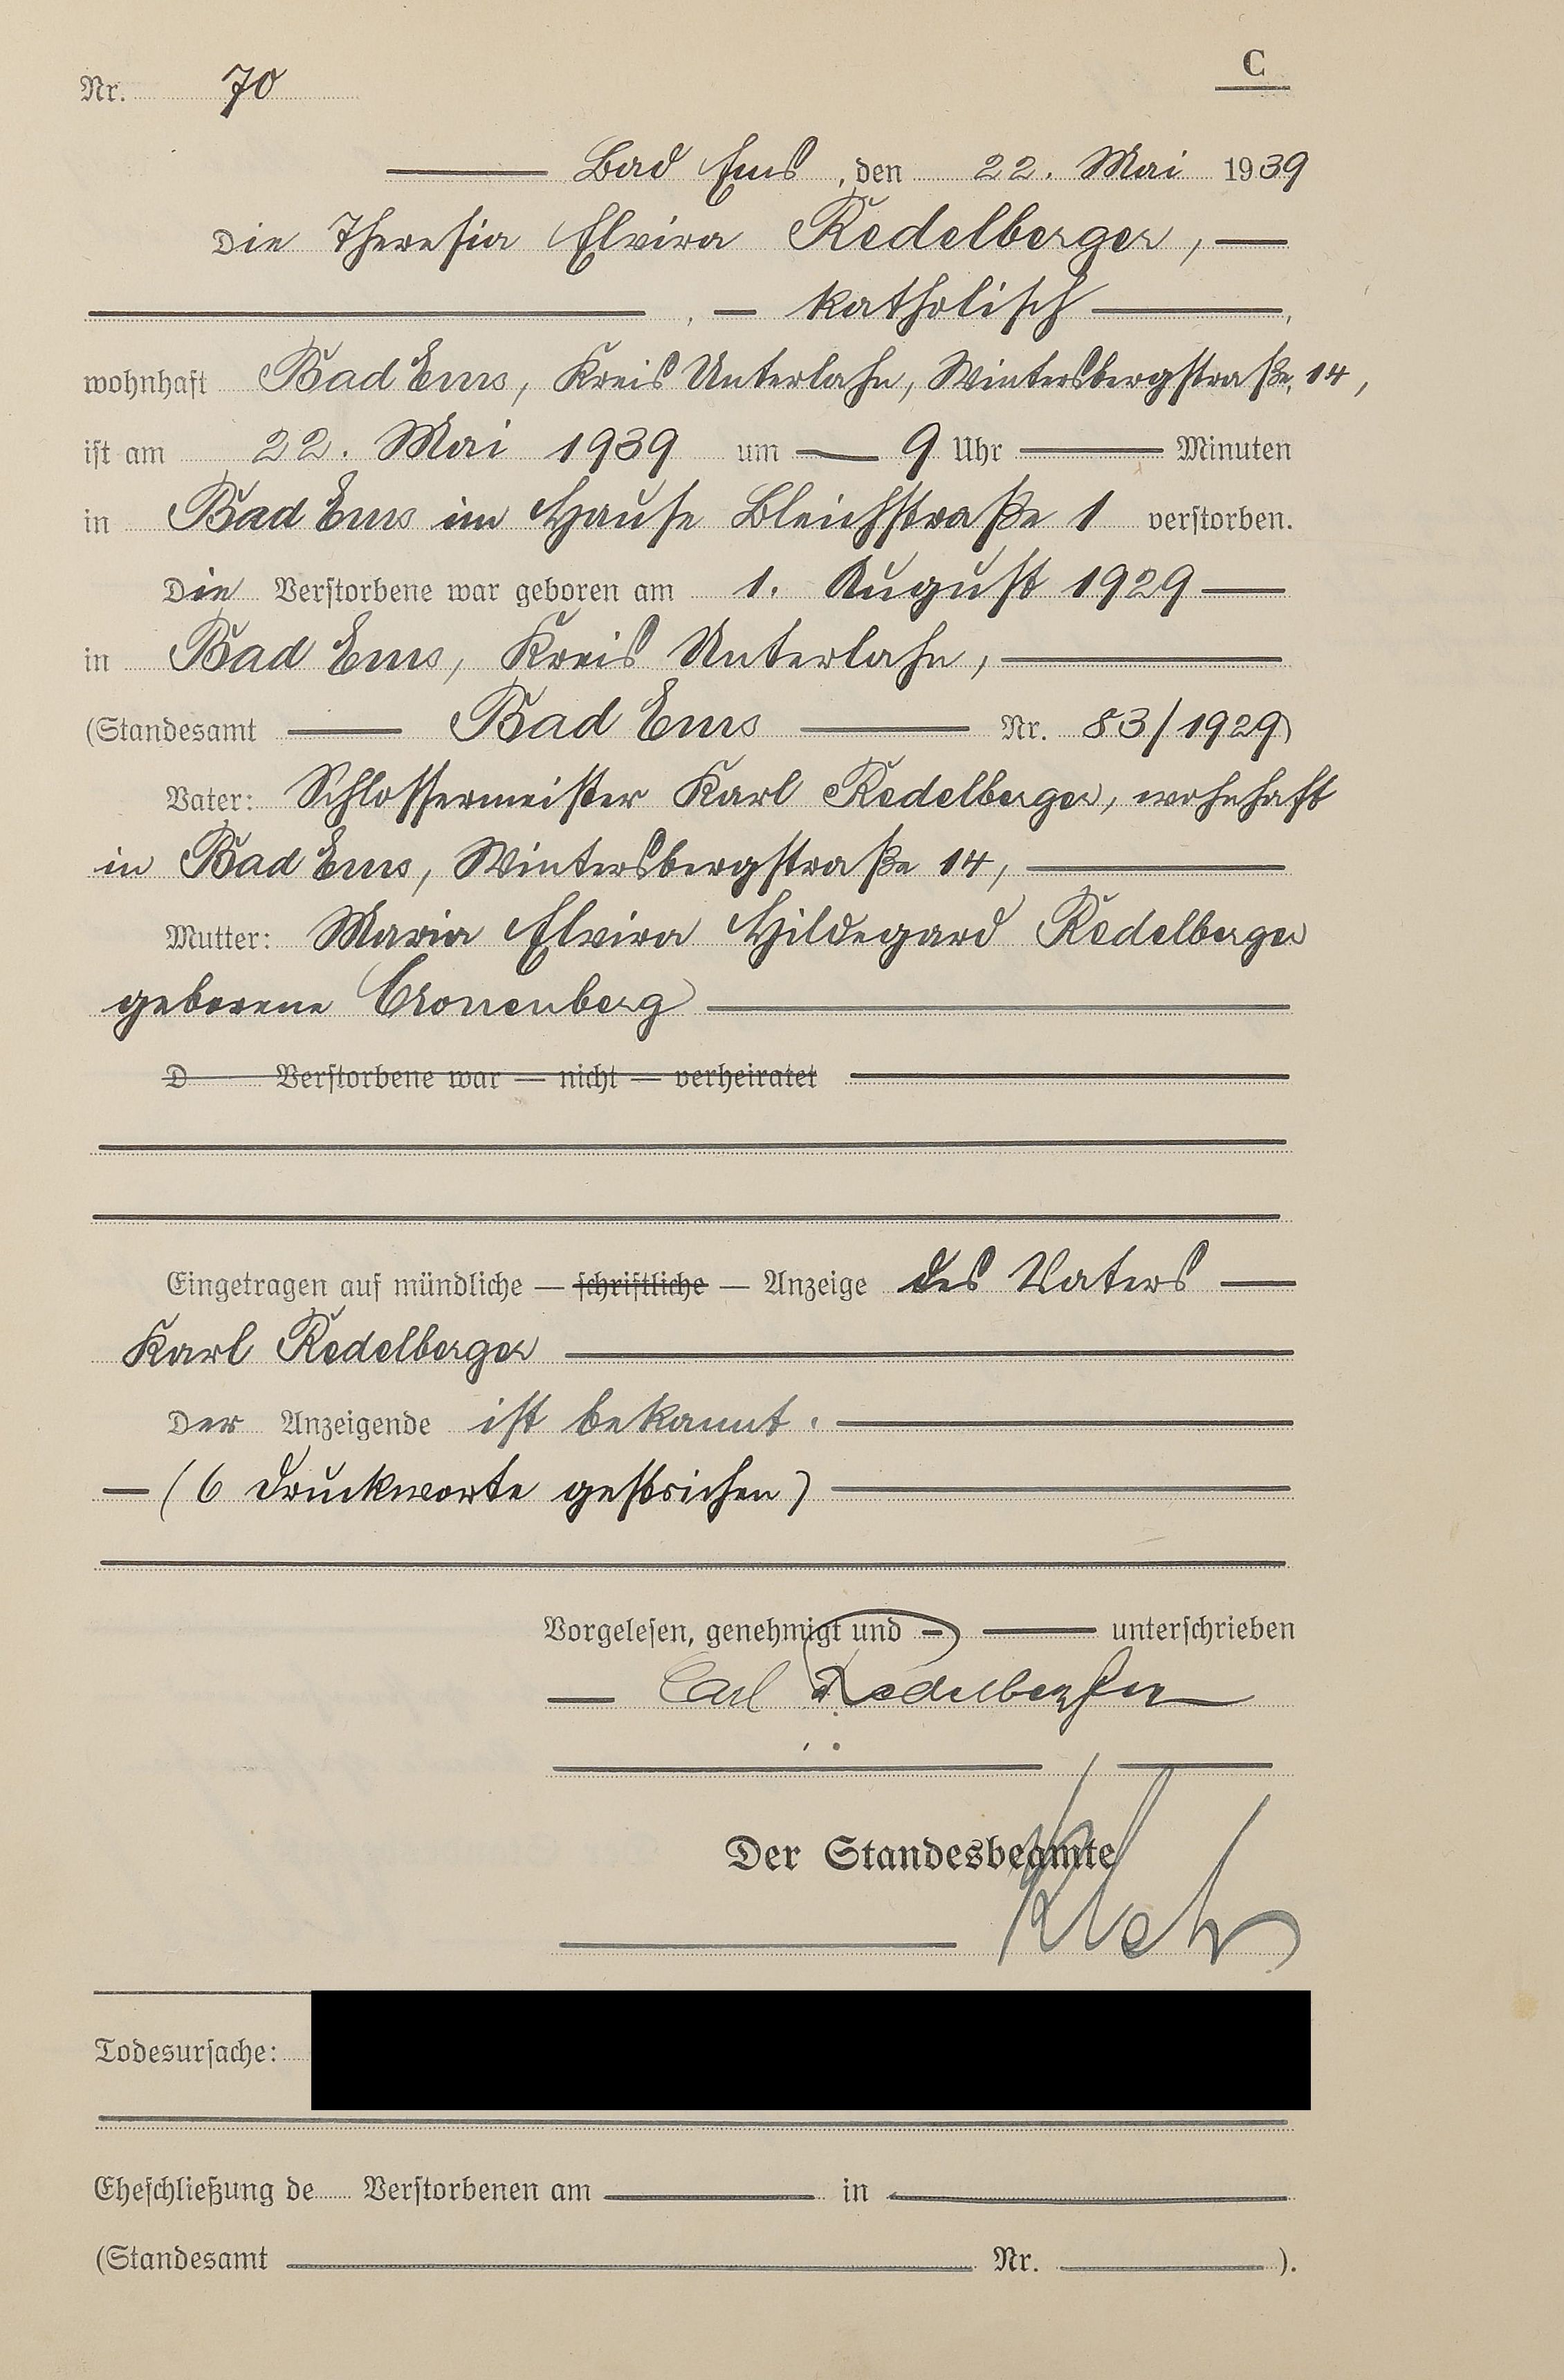 Nr. 70
C
Bad Ems, den 22. Mai 1939
Die Theresia Elvira Redelberger, —
, — katholisch —,
wohnhaft Bad Ems, Kreis Unterlahn, Wintersbergstraße 14,
ist am 22. Mai 1939 um — 9 Uhr — Minuten
in Bad Ems im Hause Bleichstraße 1 verstorben.
Die Verstorbene war geboren am 1. August 1929 —
in Bad Ems, Kreis Unterlahn, —
(Standesamt — Bad Ems — Nr. 83/1929)
Vater: Schlossermeister Karl Redelberger, wohnhaft
in Bad Ems, Wintersbergstraße 14, —
Mutter: Maria Elvira Hildegard Redelberger
geborene Cronenberg —
D Verstorbene war — nicht — verheiratet —
Eingetragen auf mündliche — schriftliche — Anzeige des Vaters —
Karl Redelberger —
Der Anzeigende ist bekannt. —
— (6 Druckworte gestrichen) —
Vorgelesen, genehmigt und — unterschrieben
— Carl Redelberger
Der Standesbeamte
Todesursache:
Eheschließung de Verstorbenen am — in —
(Standesamt — Nr. — ).